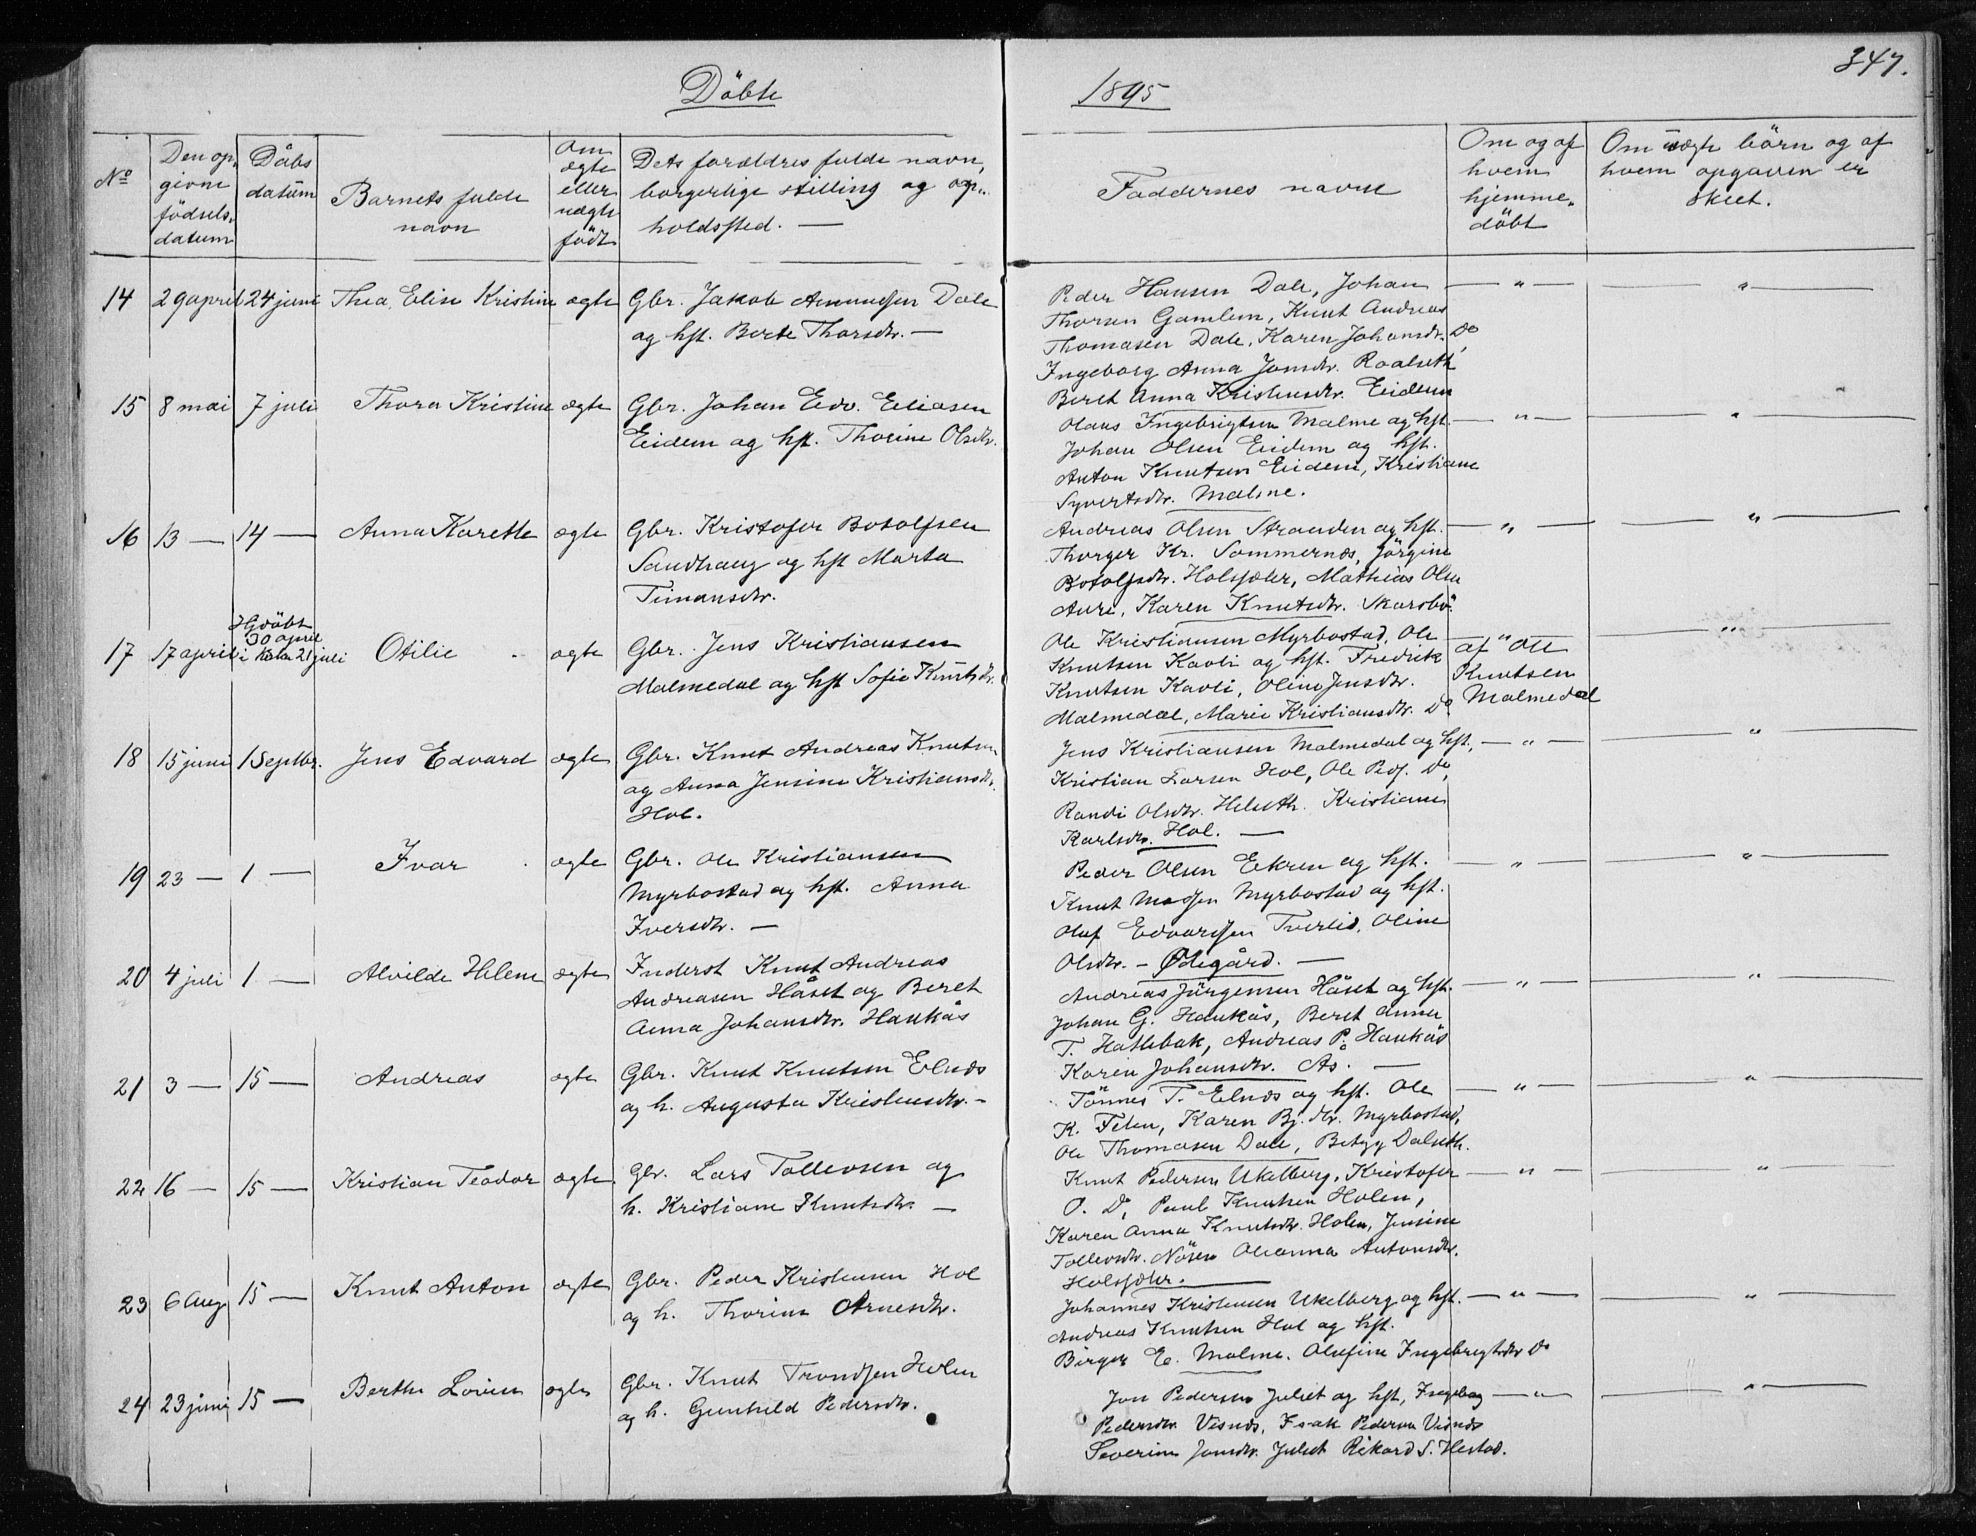 347.
Döbte
1895
No
Den op-
givne
födsels-
datum
Dåbs
datum
Barnets fulde
navn
Om
ægte
eller
uægte
født
Dets forældres fulde navn,
borgerlige stilling og op-
holdssted. —
Faddernes navne
Om og af
hvem
hjemme-
döbt
Om uægte börn og af
hvem opgaven er
skeet.
14 29 april 24 juni Thea Elise Kristine ægte Gbr. Jakob Amundsen Dale
og hst. Berte Thorsdtr. —
Peder Hansen Dale, Johan — " — — " —
Thorsen Gamlem, Knut Andreas
Thomasen Dale, Karen Johansdtr. Do,
Ingeborg Anna Jonsdtr. Roalseth
Beret Anna Kristensdtr. Eidem
15 8 mai 7 juli Thora Kristine ægte Gbr. Johan Edv. Eliasen
Eidem og hst. Thorine Olsdtr.
Olaus Ingebrigtsen Malme og hst. — " — — " —
Johan Olsen Eidem og hst.
Anton Knutsen Eidem, Kristiane
Syvertsdtr. Malme.
16 13 — 14 — Anna Karette ægte Gbr. Kristofer Botolfsen
Sandhaug og hst Marta
Timansdtr.
Andreas Olsen Stranden og hst. — " — — " —
Thorger Kr. Sommernæs, Jörgine
Botolfsdtr. Holsfæter, Mathias Olsen
Aure, Karen Knutsdtr. Skarsbö.
Hjdöbt
30 april
17 17 april i kirken 21 juli Otilie ægte Gbr. Jens Kristiansen
Malmedal og hst Sofie Knutsdtr.
Ole Kristiansen Myrbostad, Ole — " — — " —
Knutsen Kavli og hst. Fredrik
Knutsen Kavli, Oline Jensdtr.
Malmedal, Marie Kristiansdtr. Do
af Ole
Knutsen
Malmedal
18 15 juni 1 Septbr. Jens Edvard ægte Gbr. Knut Andreas Knutsen
og Anna Jensine Kristiansdtr.
Hol.
Jens Kristiansen Malmedal og hst, — " — — " —
Kristian Larsen Hol, Ole Ped. Do,
Randi Olsdtr. Helseth. Kristiane
Karlsdtr. Hol. —
19 23 — 1 — Ivar ægte Gbr. Ole Kristiansen
Myrbostad og hst. Anna
Iversdtr. —
Peder Olsen Ekren og hst. — " — — " —
Knut Madsen Myrbostad og hst.
Oluf Edvardsen Tverlid, Oline
Olsdtr. — Ødegård. —
20 4 juli 1 — Alvilde Helene ægte Inderst Knut Andreas
Andreasen Håset og Beret
Anna Johansdtr. Haukås
Andreas Jörgensen Håset og hst. — " — — " —
Johan G. Haukås, Beret Anna
T. Hatlebak, Andreas P. Haukås
Karen Johansdtr. Ås. —
21 3 — 15 — Andreas ægte Gbr. Knut Knutsen Elnæs
og h. Augusta Kristensdtr. —
Tönnes T. Elnæs og hst. Ole — " — — " —
K. Felen, Karen Bj.dtr. Myrbostad,
Ole Thomasen Dale, Betzy Dalseth.
22 16 — 15 — Kristian Teodor ægte Gbr. Lars Tollevsen og
h. Kristiane Knutsdtr. —
Knut Pedersen Ukelberg, Kristofer — " — — " —
O. Do, Paul Knutsen Holen,
Karen Anna Knutsdtr. Holen, Jensine
Tollevsdtr. Nösen Oleanna Antonsdtr.
Holsfæter.
23 6 Aug 15 — Knut Anton ægte Gbr. Peder Kristensen Hol
og h. Thorine Arnesdtr.
Johannes Kristensen Ukelberg og hst. — " — — " —
Andreas Knutsen Hol og hst.
Birger E. Malme. Olufine Ingebrigtsdtr Do
24 23 juni 15 — Berthe Lovise ægte Gbr. Knut Trondsen Holen
og h. Gunhild Pedersdtr.
Jon Pedersen Julset og hst, Ingeborg — " — — " —
Pedersdtr Visnæs, Isak Pedersen Visnæs
Severine Jonsdtr. Julset Rikard S. Hestad.